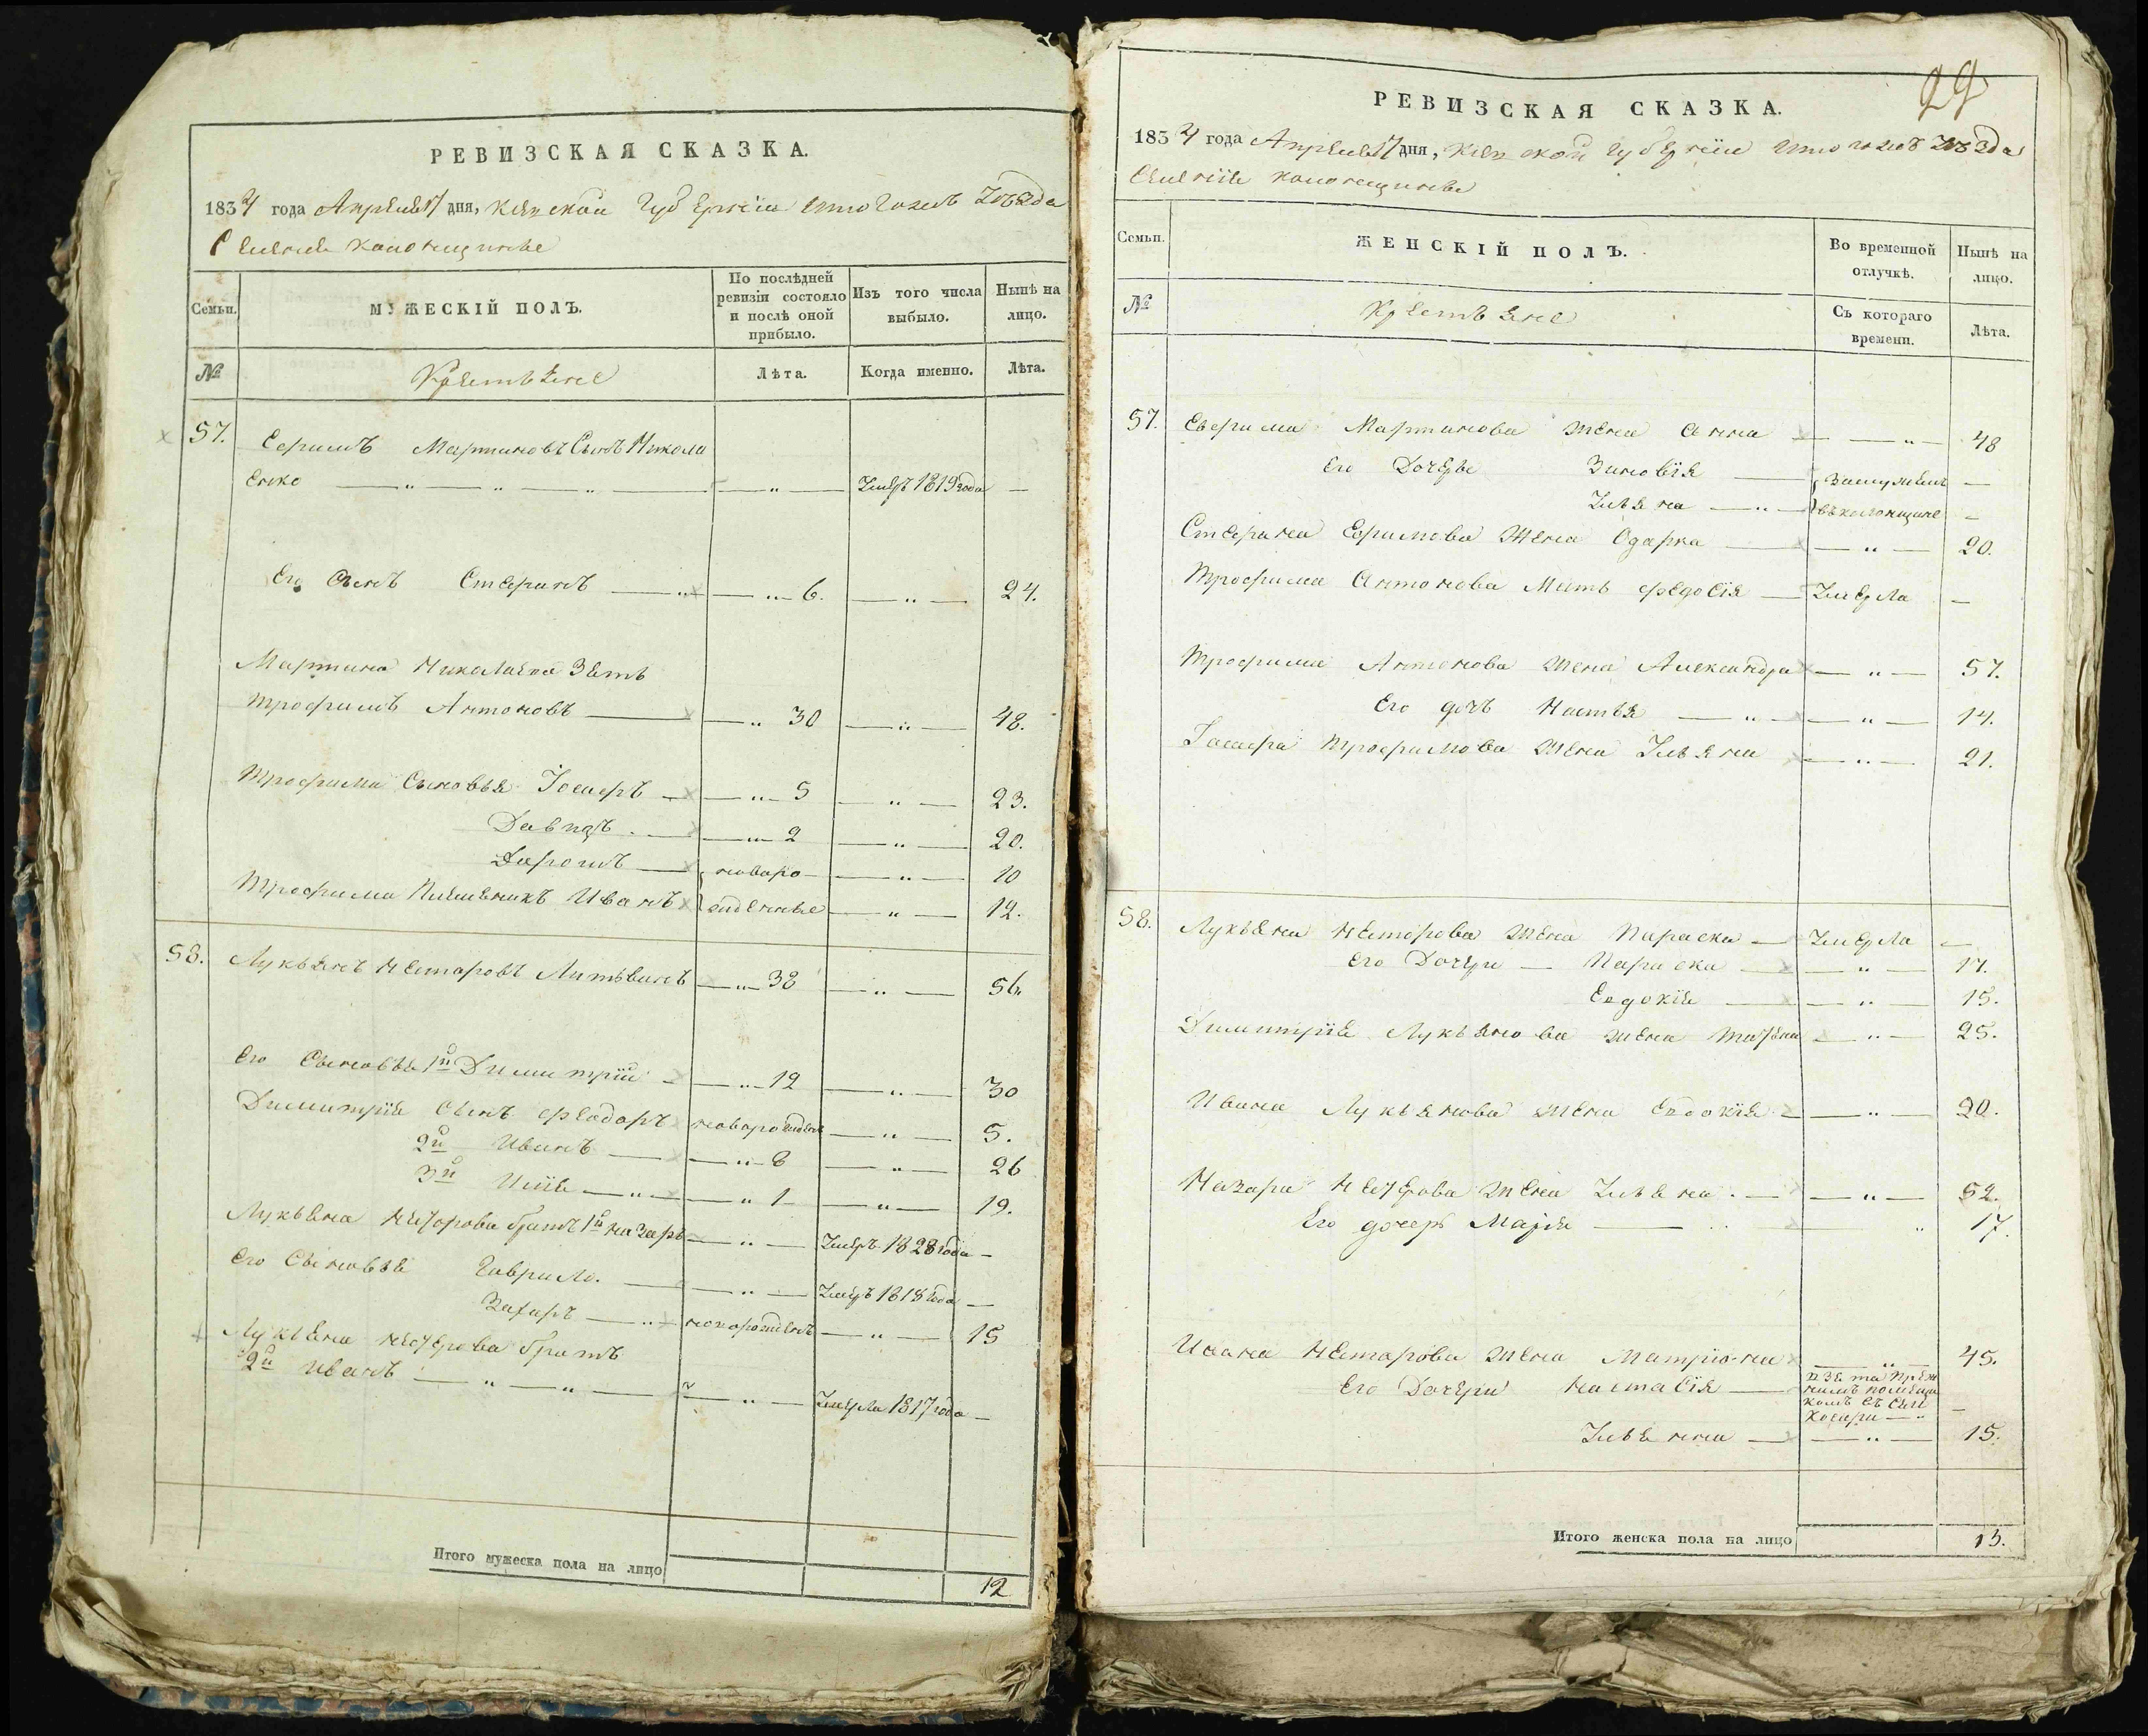 РЕВИЗСКАЯ СКАЗКА.
1834 года Апреля 17 дня, Киевской Губерніи Уѣзда
Селенія Колонщины
Семьи.
МУЖЕСКІЙ ПОЛЪ.
По послѣдней ревизіи состояло и послѣ оной прибыло.
Изъ того числа выбыло.
Нынѣ на лицо.
№
Крестьяне
Лѣта.
Когда именно.
Лѣта.
57.
Ефримъ Мартиновъ Сынъ Никола
енко — „ — „ — „ — — „ — Умеръ 1819 года —
Его Сынъ Стефанъ — „ 6. — „ — 24.
Мартина Николаева Зять
Трофимъ Антоновъ — „ 30 — „ — 48.
Трофима Сыновья Іосифъ — „ 5 — „ — 23.
Давидъ — „ 2 — „ — 20.
новаро — „ — 10
Трофима Племеникъ Иванъ жденные — „ — 12.
58.
Лукьянъ Нестаровъ Литвинъ — „ 38 — „ — 56
Его Сыновья 1й Димитрій — „ 12 — „ — 30
Димитрія Сынъ Феодоръ новарожденъ — „ — 5.
2й Иванъ — „ 8 — „ — 26
3й Илія — „ — „ 1 — „ — 19.
Лукьяна Несторова братъ 1й Назаръ — „ — Умеръ 1828 года —
Его Сыновья Гаврило. — „ — Умеръ 1818 года —
Захаръ — „ — новарожденъ — „ — 15
Лукьяна Нестерова братъ
2й Иванъ — „ — „ — — „ — Умерла 1817 года —
Итого мужеска пола на лицо
12
29
РЕВИЗСКАЯ СКАЗКА.
1834 года Апреля 17 дня, Киевской Губерніи Уѣзда
Селенія Колонщины
Семьи.
ЖЕНСКІЙ ПОЛЪ.
Во временной отлучкѣ.
Нынѣ на лицо.
№
Крестьяне
Съ котораго времени.
Лѣта.
57.
Ефрима Мартинова жена Анна — „ — 48
Его Дочери Зиновія — Замужемъ —
Ульяна — „ — въ Колонщине —
Стефана Ефримова Жена Одарка — — „ — 20.
Трофима Антонова Мать Федосія — Умерла —
Трофима Антонова жена Александра — „ — 57.
Его дочь Настья — „ — — „ — 14.
Іосифа Трофимова жена Ульяна — „ — 21.
58.
Лукьяна Несторова жена Параска — Умерла —
Его Дочери — Параска — — „ — 17.
Евдокія — — „ — 15.
Димитрія Лукьянова жена Татьяна — „ — 25.
Ивана Лукьянова жена Евдокія — — „ — 20.
Назара Нестерова жена Ульяна. — — „ — 52.
Его дочеръ Марія — „ 17.
Ивана Нестарова жена Матріона — „ — 45.
Его Дочери Настасія — взята преж
нимъ помещи
комъ въ Сел —
—
Ульянна — — „ — 15.
Итого женска пола на лицо
13.